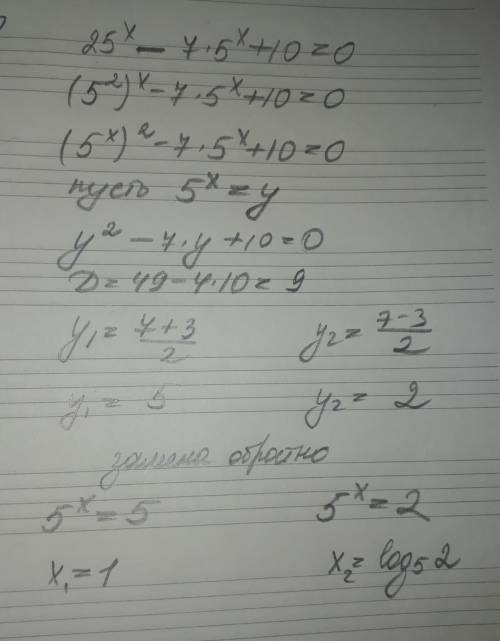 25ˣ - 7·5ˣ + 10 = 0
(5²)ˣ - 7·5ˣ + 10 = 0
(5ˣ)² - 7·5ˣ + 10 = 0
пусть 5ˣ = y
y² - 7·y + 10 = 0
D = 49 - 4·10 = 9
y₁ = (7+3)/2 y₂ = (7-3)/2
y₁ = 5 y₂ = 2
замена обратно
5ˣ = 5 5ˣ = 2
x₁ = 1 x₂ = log₅ 2